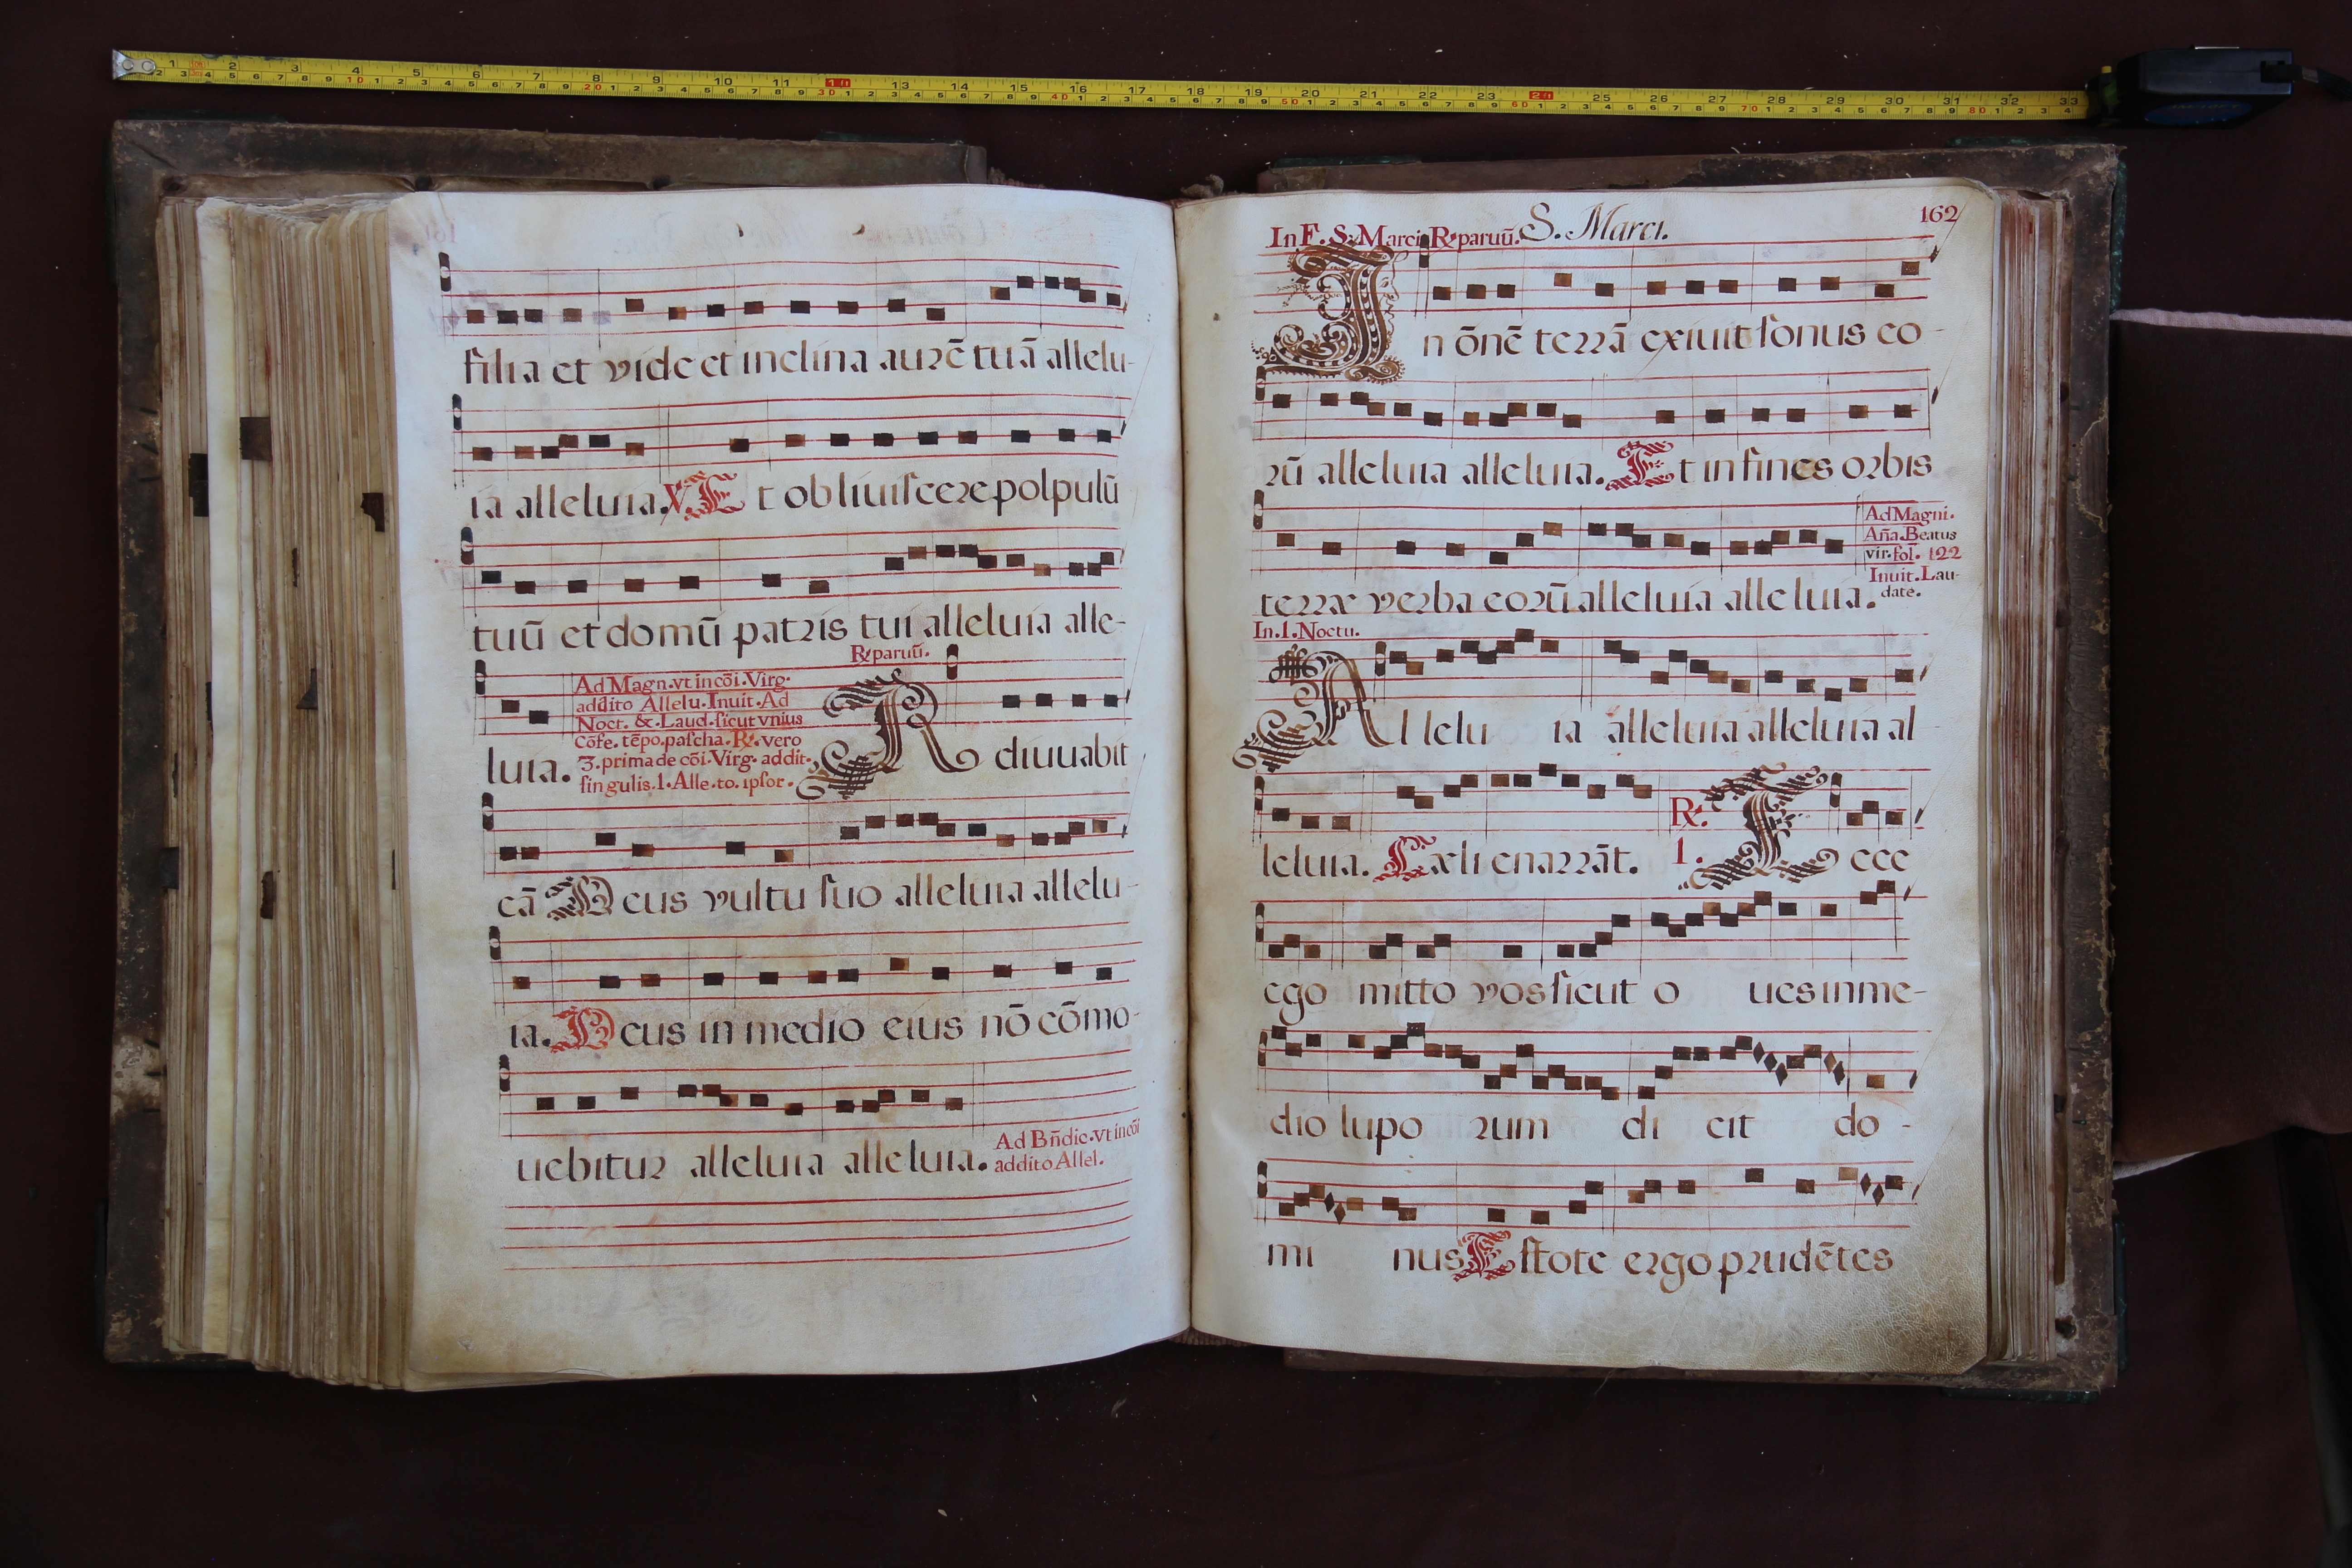 filia et vide et inclina aurē tuā allelu-
ia alleluia. V. Et obliuiscere polpulū
tuū et domū patris tui alleluia alle-
R. paruū.
luia.
Ad Magn. vt in cōi. Virg.
addito Allelu. Inuit. Ad
Noct. & Laud. sicut vnius
Cōfe. tēpo. pascha. R. vero
3. prima de cōi. Virg. addit.
singulis. 1. Alle. to. ipsor.
A diuuabit
cā Deus vultu suo alleluia allelu-
ia. Deus in medio eius nō cōmo-
uebitur alleluia alleluia.
Ad Bn̄dic. vt in cōi
addito Allel.
In F. S. Marci R. paruū. S. Marci.
162
In ōnē terrā exiuit sonus eo-
rū alleluia alleluia. Et in fines orbis
terræ verba eorū alleluia alleluia.
Ad Magni.
Aña. Beatus
vir. fol. 122
Inuit. Lau-
date.
In. 1. Noctu.
Allelu ia alleluia alleluia al-
leluia. Cæli enarrāt. R. 1. Ecce
ego mitto vos sicut o ues in me-
dio lupo rum di cit do-
mi nus Estote ergo prudētes